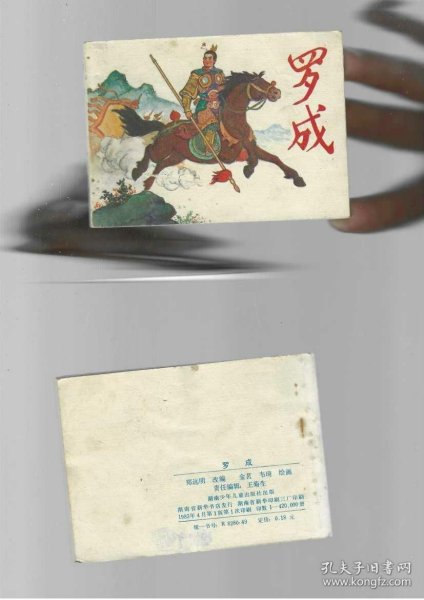 罗成
罗成
郑远明 改编 金茗 韦琦 绘画
责任编辑:王菊生
湖南少年儿童出版社出版
湖南省新华书店发行 湖南省新华印刷三厂印刷
1983年4月第1版第1次印刷 印数1—420,000册
统一书号:R 8280·49 定价:0.18元
孔夫子旧书网
www.kongfz.com